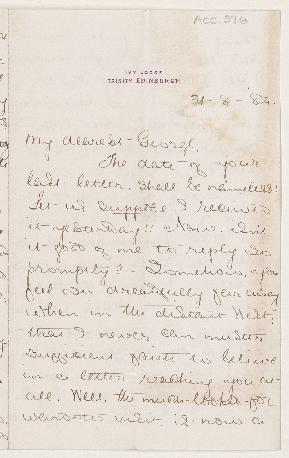 ACC. 376
IVY LODGE
TRINITY, EDINBURGH
31 - 8 - 82.
My dearest George,
The date of your
last letter, shall be nameless!
Let us suppose I received
it yesterday!! Now isn't
it good of me to reply so
promptly? - Somehow, you
feel so dreadfully far away
when in the distant West,
that I never can muster
sufficient faith to believe
in a letter reaching you at
all. Well, the much-looked-for
visit is now a